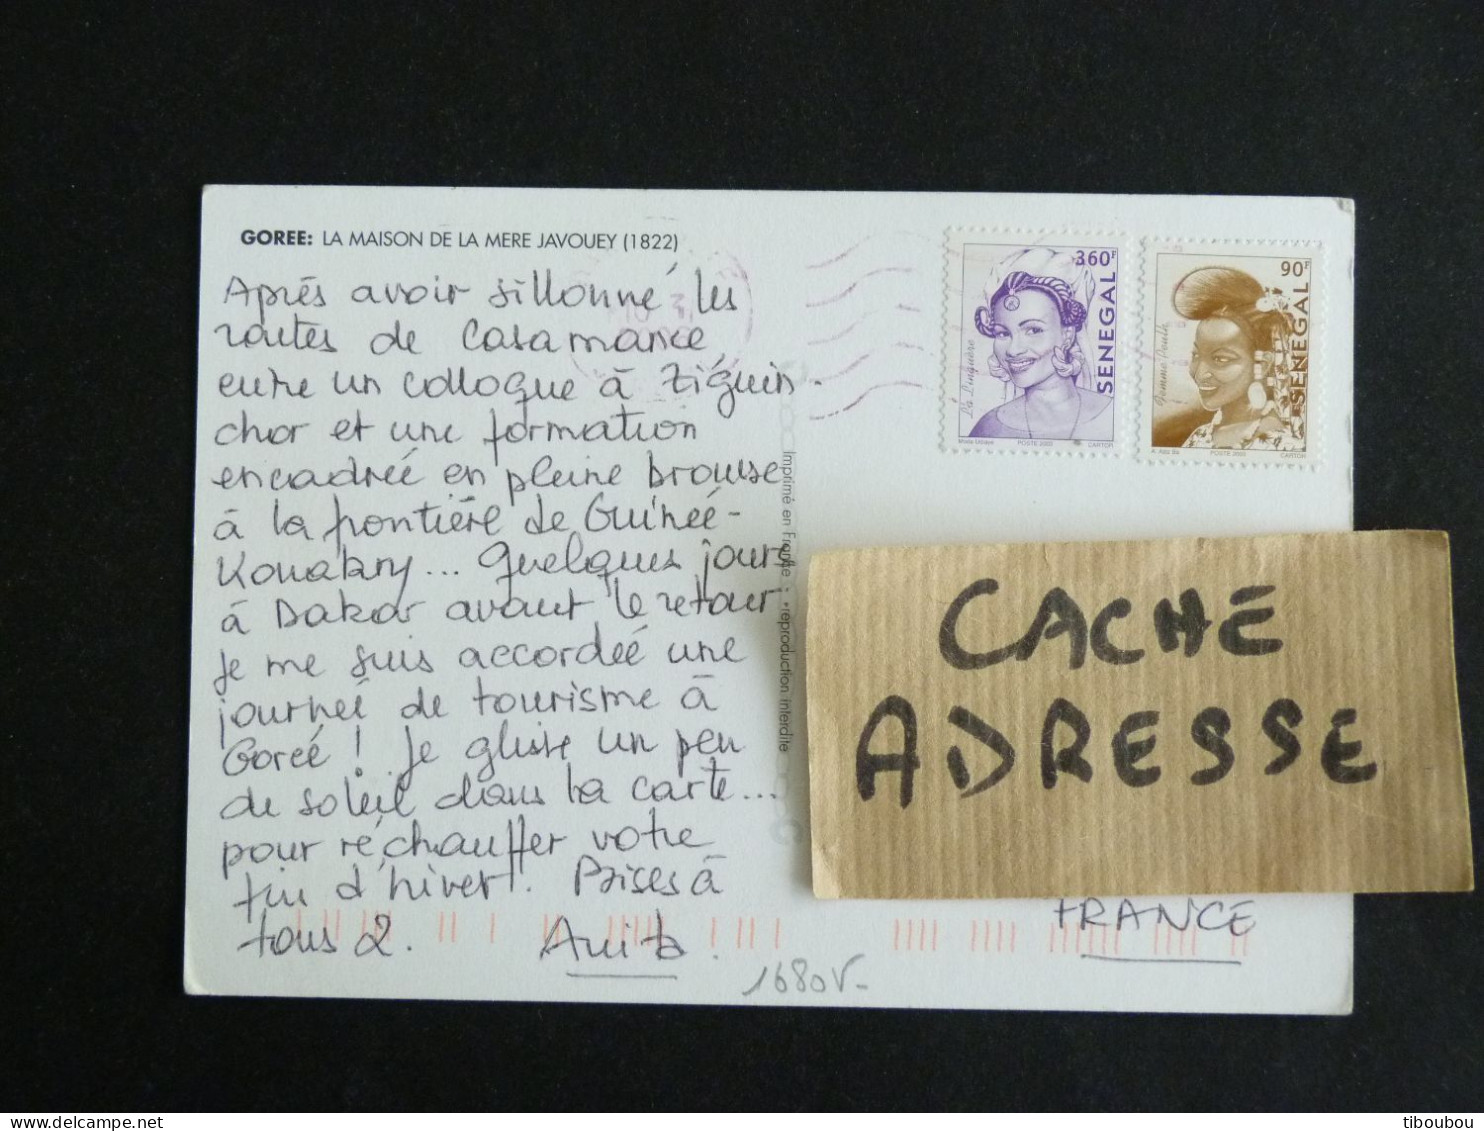 GOREE: LA MAISON DE LA MERE JAVOUEY (1822)
Après avoir sillonné les
routes de Casamance
entre un colloque à Ziguin-
chor et une formation
encadrée en pleine brousse
à la frontière de Guinée-
Konakry... Quelques jours
à Dakar avant le retour
je me suis accordée une
journée de tourisme à
Gorée ! Je glisse un peu
de soleil dans la carte...
pour réchauffer votre
fin d'hiver. Bises à
tous 2. Anita.
1680V-
Imprimé en France - reproduction interdite
360F
SENEGAL
La Linguère
POSTE 2000
CARTOR
90F
SENEGAL
Femme Peulh
POSTE 2000
CARTOR
CACHE
ADRESSE
FRANCE
tiboubou